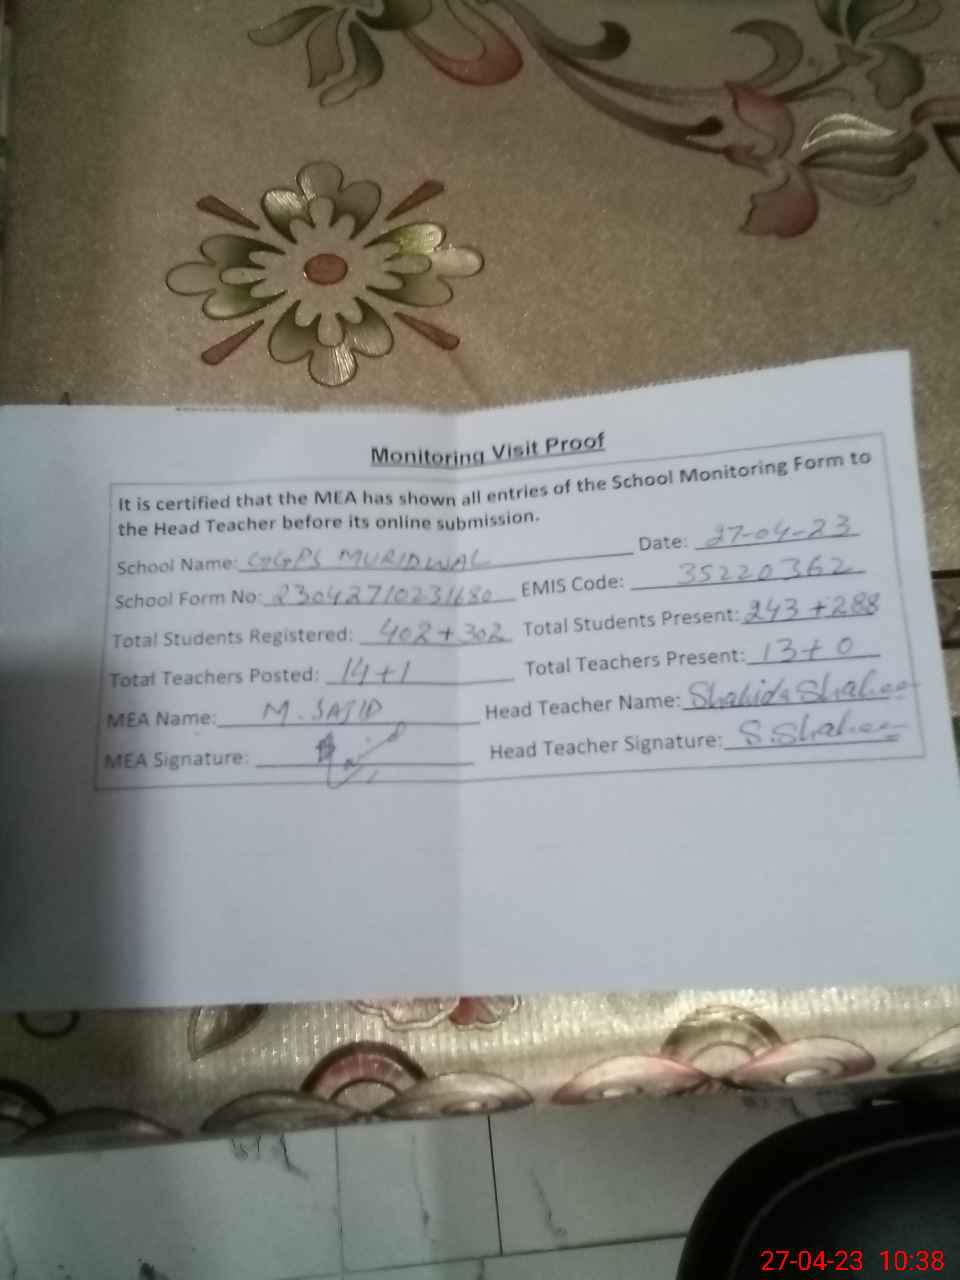 Monitoring Visit Proof
It is certified that the MEA has shown all entries of the School Monitoring Form to
the Head Teacher before its online submission.
School Name: GGPS MURIDWAL Date: 27-04-23
School Form No: 23042710231680 EMIS Code: 35220362
Total Students Registered: 402+302 Total Students Present: 243+288
Total Teachers Posted: 14+1 Total Teachers Present: 13+0
MEA Name: M. SAJID Head Teacher Name: Shahida Shaheen
MEA Signature: Head Teacher Signature: S.Shaheen
27-04-23 10:38